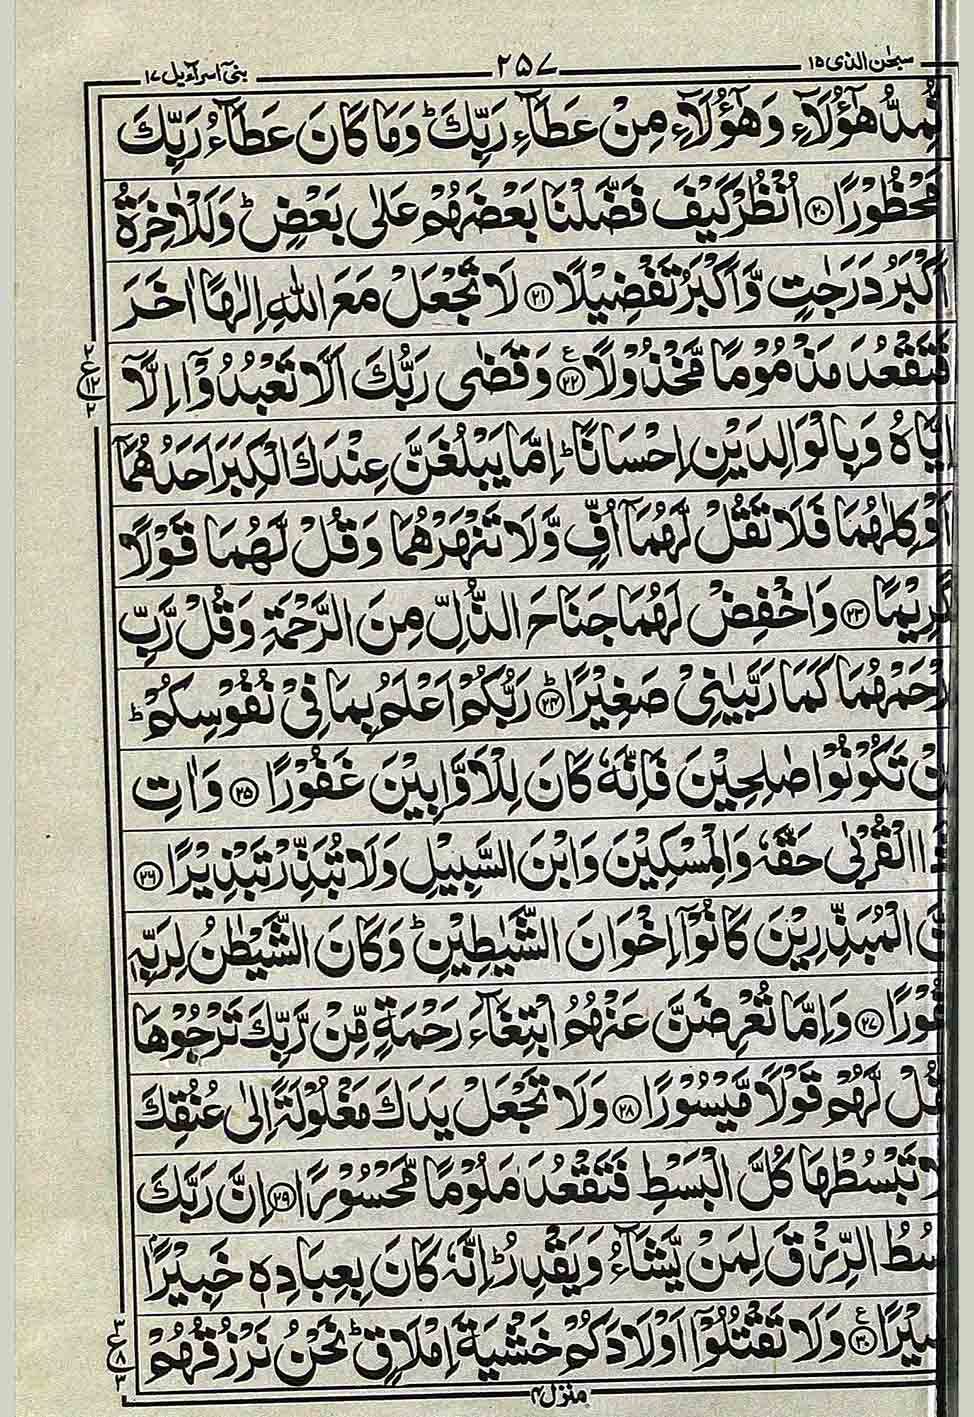 سبحٰن الذی ۱۵
۲۵۷
بنیٓ اسرآءیل ۱۷
نُّمِدُّ هٰٓؤُلَآءِ وَهٰٓؤُلَآءِ مِنْ عَطَآءِ رَبِّكَ ؕ وَمَا كَانَ عَطَآءُ رَبِّكَ
مَحْظُوْرًا ۝۲۰ اُنْظُرْ كَيْفَ فَضَّلْنَا بَعْضَهُمْ عَلٰى بَعْضٍ ؕ وَلَلْاٰخِرَةُ
اَكْبَرُ دَرَجٰتٍ وَّاَكْبَرُ تَفْضِيْلًا ۝۲۱ لَا تَجْعَلْ مَعَ اللّٰهِ اِلٰهًا اٰخَرَ
فَتَقْعُدَ مَذْمُوْمًا مَّخْذُوْلًا ۝۲۲ ع وَقَضٰى رَبُّكَ اَلَّا تَعْبُدُوْٓا اِلَّآ
اِيَّاهُ وَبِالْوَالِدَيْنِ اِحْسَانًا ؕ اِمَّا يَبْلُغَنَّ عِنْدَكَ الْكِبَرَ اَحَدُهُمَآ
اَوْ كِلٰهُمَا فَلَا تَقُلْ لَّهُمَآ اُفٍّ وَّلَا تَنْهَرْهُمَا وَقُلْ لَّهُمَا قَوْلًا
كَرِيْمًا ۝۲۳ وَاخْفِضْ لَهُمَا جَنَاحَ الذُّلِّ مِنَ الرَّحْمَةِ وَقُلْ رَّبِّ
ارْحَمْهُمَا كَمَا رَبَّيٰنِيْ صَغِيْرًا ؕ۝۲۴ رَبُّكُمْ اَعْلَمُ بِمَا فِيْ نُفُوْسِكُمْ ؕ
اِنْ تَكُوْنُوْا صٰلِحِيْنَ فَاِنَّهٗ كَانَ لِلْاَوَّابِيْنَ غَفُوْرًا ۝۲۵ وَاٰتِ
ذَا الْقُرْبٰى حَقَّهٗ وَالْمِسْكِيْنَ وَابْنَ السَّبِيْلِ وَلَا تُبَذِّرْ تَبْذِيْرًا ۝۲۶
اِنَّ الْمُبَذِّرِيْنَ كَانُوْٓا اِخْوَانَ الشَّيٰطِيْنِ ؕ وَكَانَ الشَّيْطٰنُ لِرَبِّهٖ
كَفُوْرًا ۝۲۷ وَاِمَّا تُعْرِضَنَّ عَنْهُمُ ابْتِغَآءَ رَحْمَةٍ مِّنْ رَّبِّكَ تَرْجُوْهَا
فَقُلْ لَّهُمْ قَوْلًا مَّيْسُوْرًا ۝۲۸ وَلَا تَجْعَلْ يَدَكَ مَغْلُوْلَةً اِلٰى عُنُقِكَ
وَلَا تَبْسُطْهَا كُلَّ الْبَسْطِ فَتَقْعُدَ مَلُوْمًا مَّحْسُوْرًا ۝۲۹ اِنَّ رَبَّكَ
يَبْسُطُ الرِّزْقَ لِمَنْ يَّشَآءُ وَيَقْدِرُ ؕ اِنَّهٗ كَانَ بِعِبَادِهٖ خَبِيْرًاۢ
بَصِيْرًا ۝۳۰ ع وَلَا تَقْتُلُوْٓا اَوْلَادَكُمْ خَشْيَةَ اِمْلَاقٍ ؕ نَحْنُ نَرْزُقُهُمْ
۲ ع ۱۲ ۲
۳ ع ۸ ۳
منزل ۴